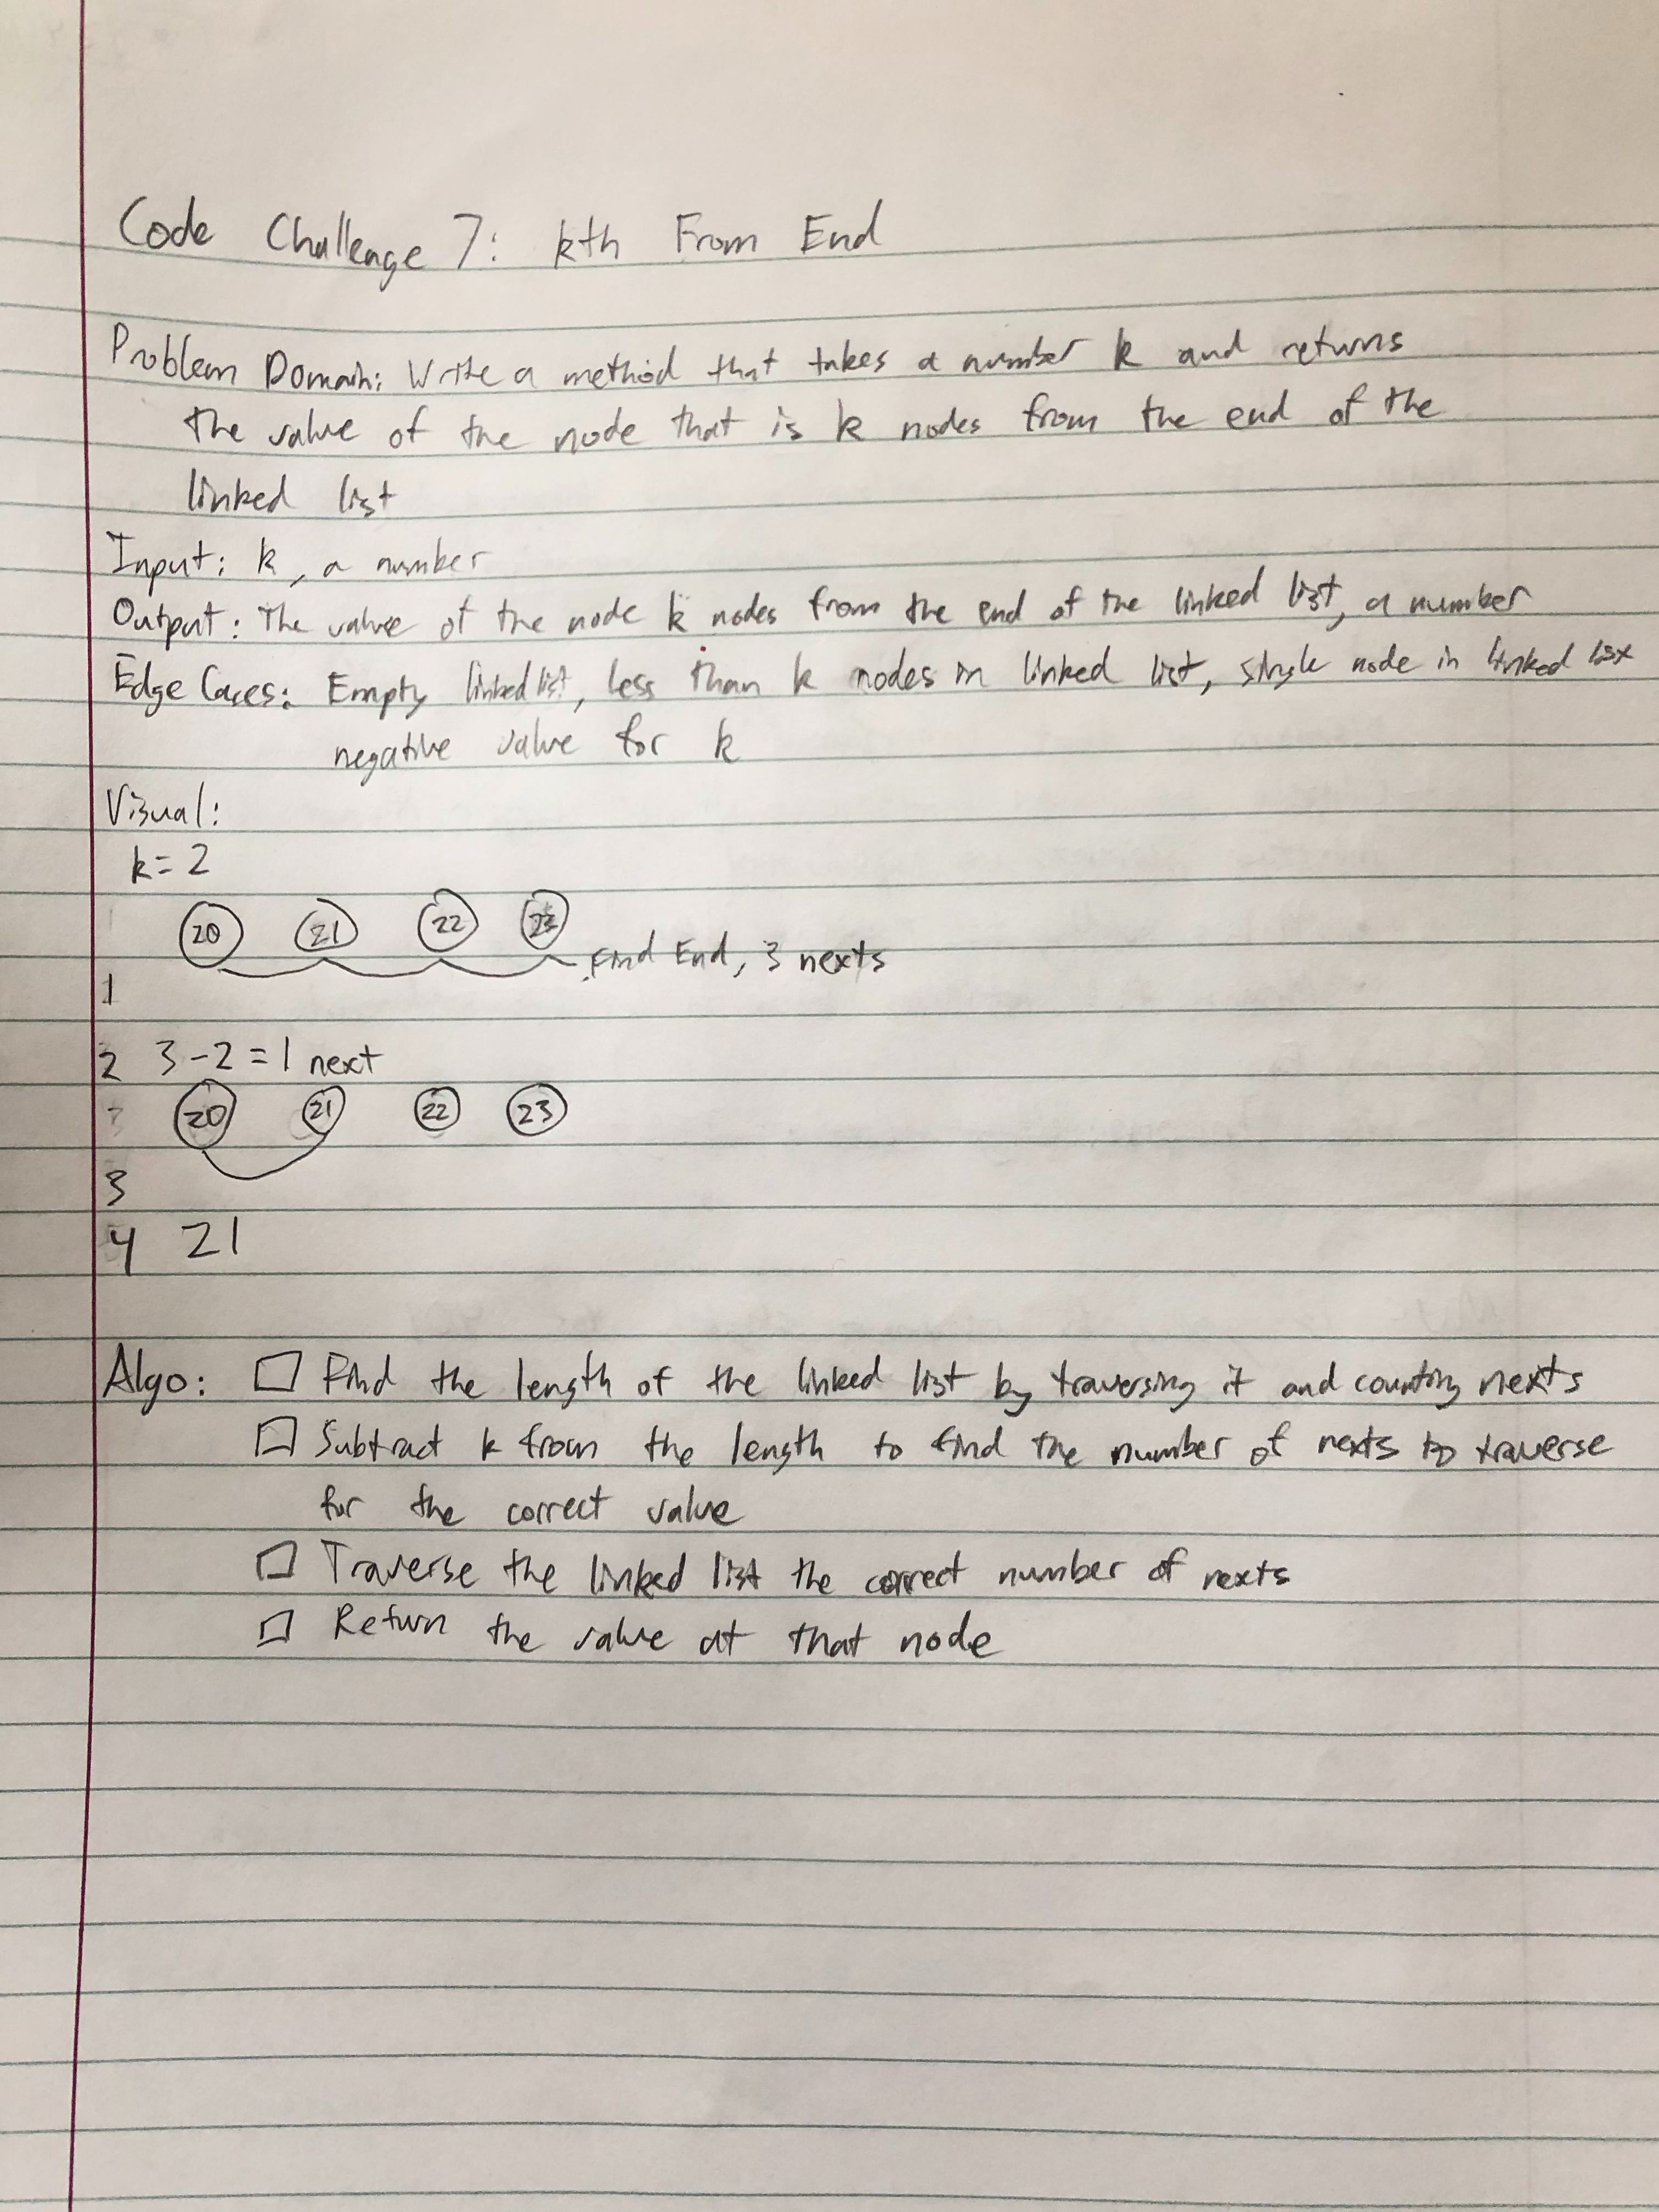 Code Challenge 7: kth From End
Problem Domain: Write a method that takes a number k and returns
the value of the node that is k nodes from the end of the
linked list
Input: k, a number
Output: The value of the node k nodes from the end of the linked list, a number
Edge Cases: Empty linked list, less than k nodes in linked list, single node in linked list
negative value for k
Visual:
k=2
20 21 22 23
Find End, 3 nexts
1
2 3-2=1 next
20 21 22 23
3
4 21
Algo: Find the length of the linked list by traversing it and counting nexts
Subtract k from the length to find the number of nexts to traverse
for the correct value
Traverse the linked list the correct number of nexts
Return the value at that node